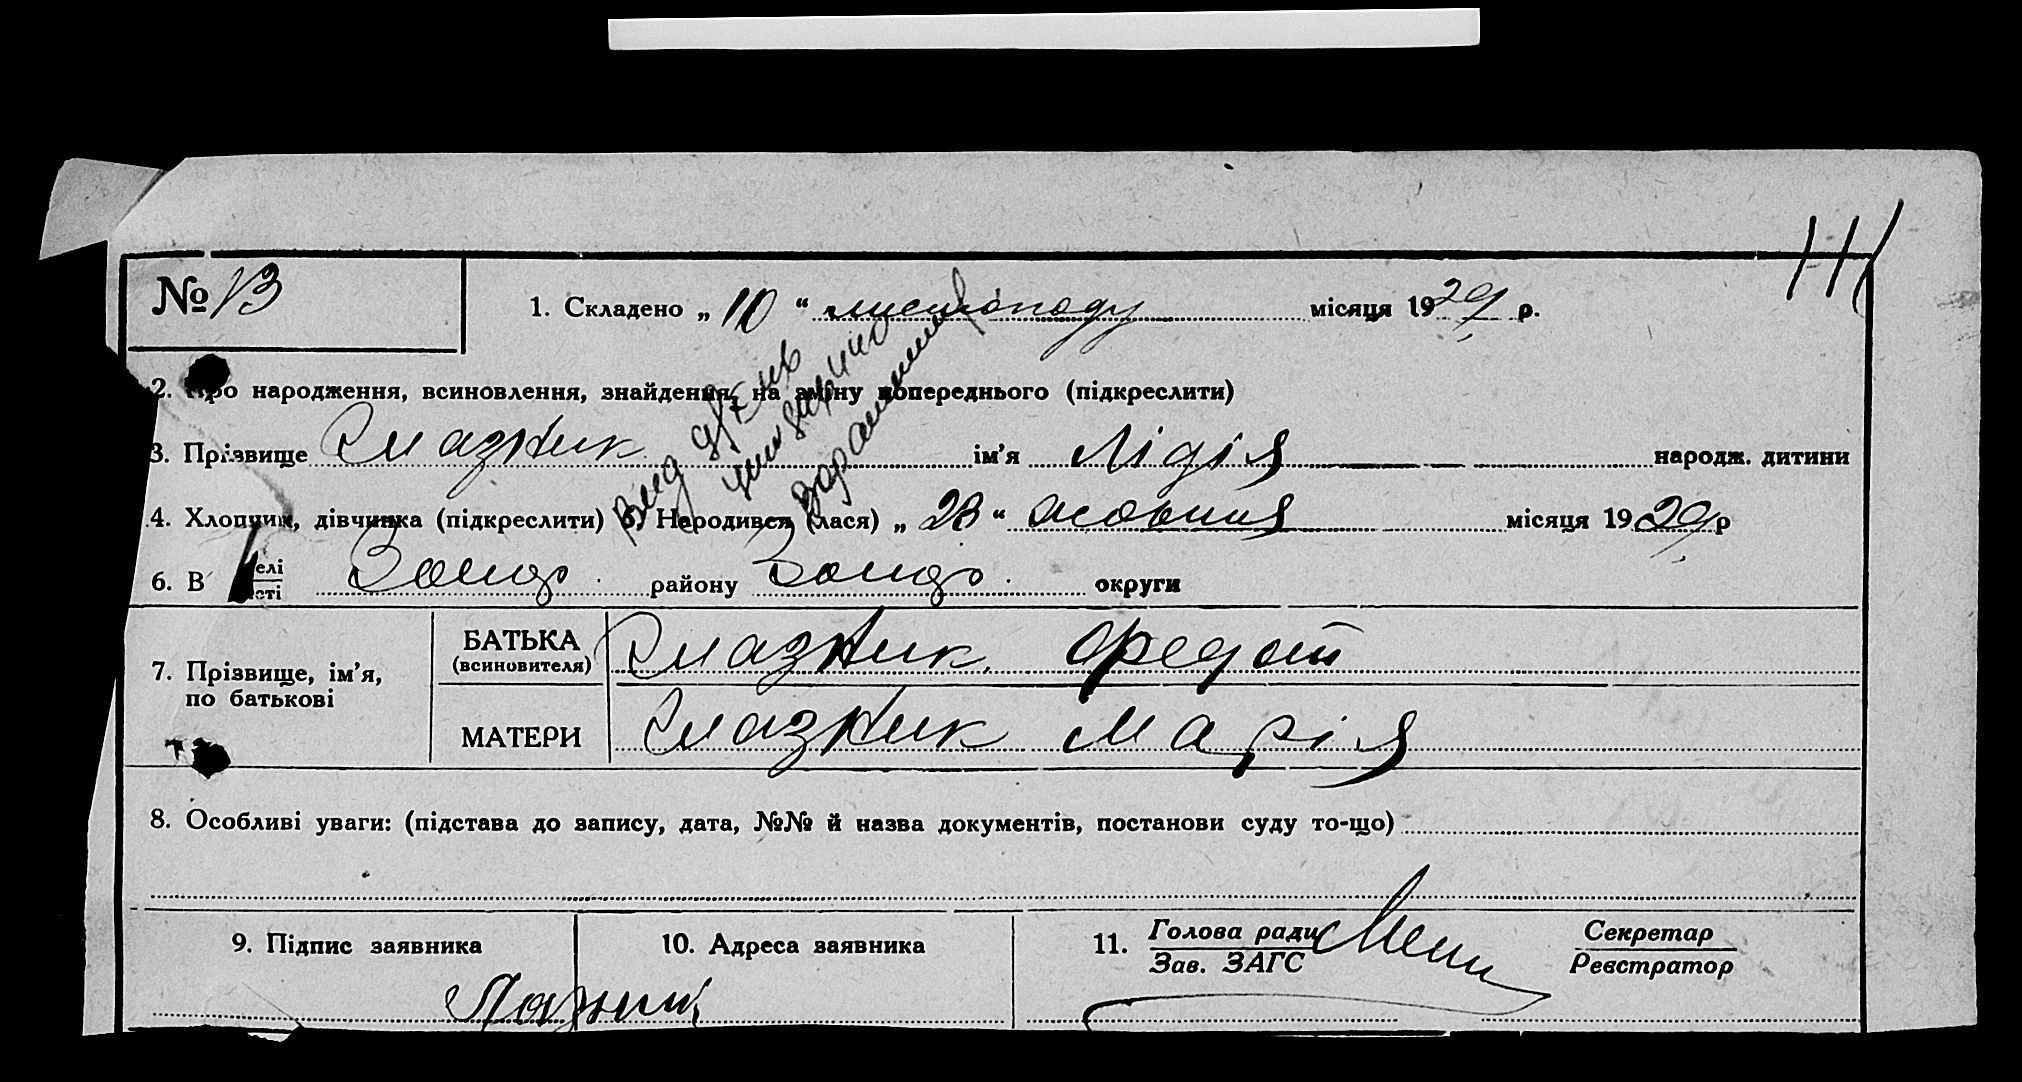 № 13
1. Складено „ 10 “ листопаду місяця 1929 р.
2. Про народження, всиновлення, знайдення, на зміну попереднього (підкреслити)
3. Прізвище Смазник ім’я Лідія народж. дитини
4. Хлопчик, дівчинка (підкреслити) 5. Народився (лася) „ 23 “ жовтня місяця 1929 р
6. В селі
району округи
7. Прізвище, ім’я,
по батькові
БАТЬКА
(всиновителя)
Смазник Федот
МАТЕРИ
Смазник Марія
8. Особливі уваги: (підстава до запису, дата, №№ й назва документів, постанови суду то-що)
9. Підпис заявника
10. Адреса заявника
11. Голова ради
Зав. ЗАГС
Секретар
Реєстратор